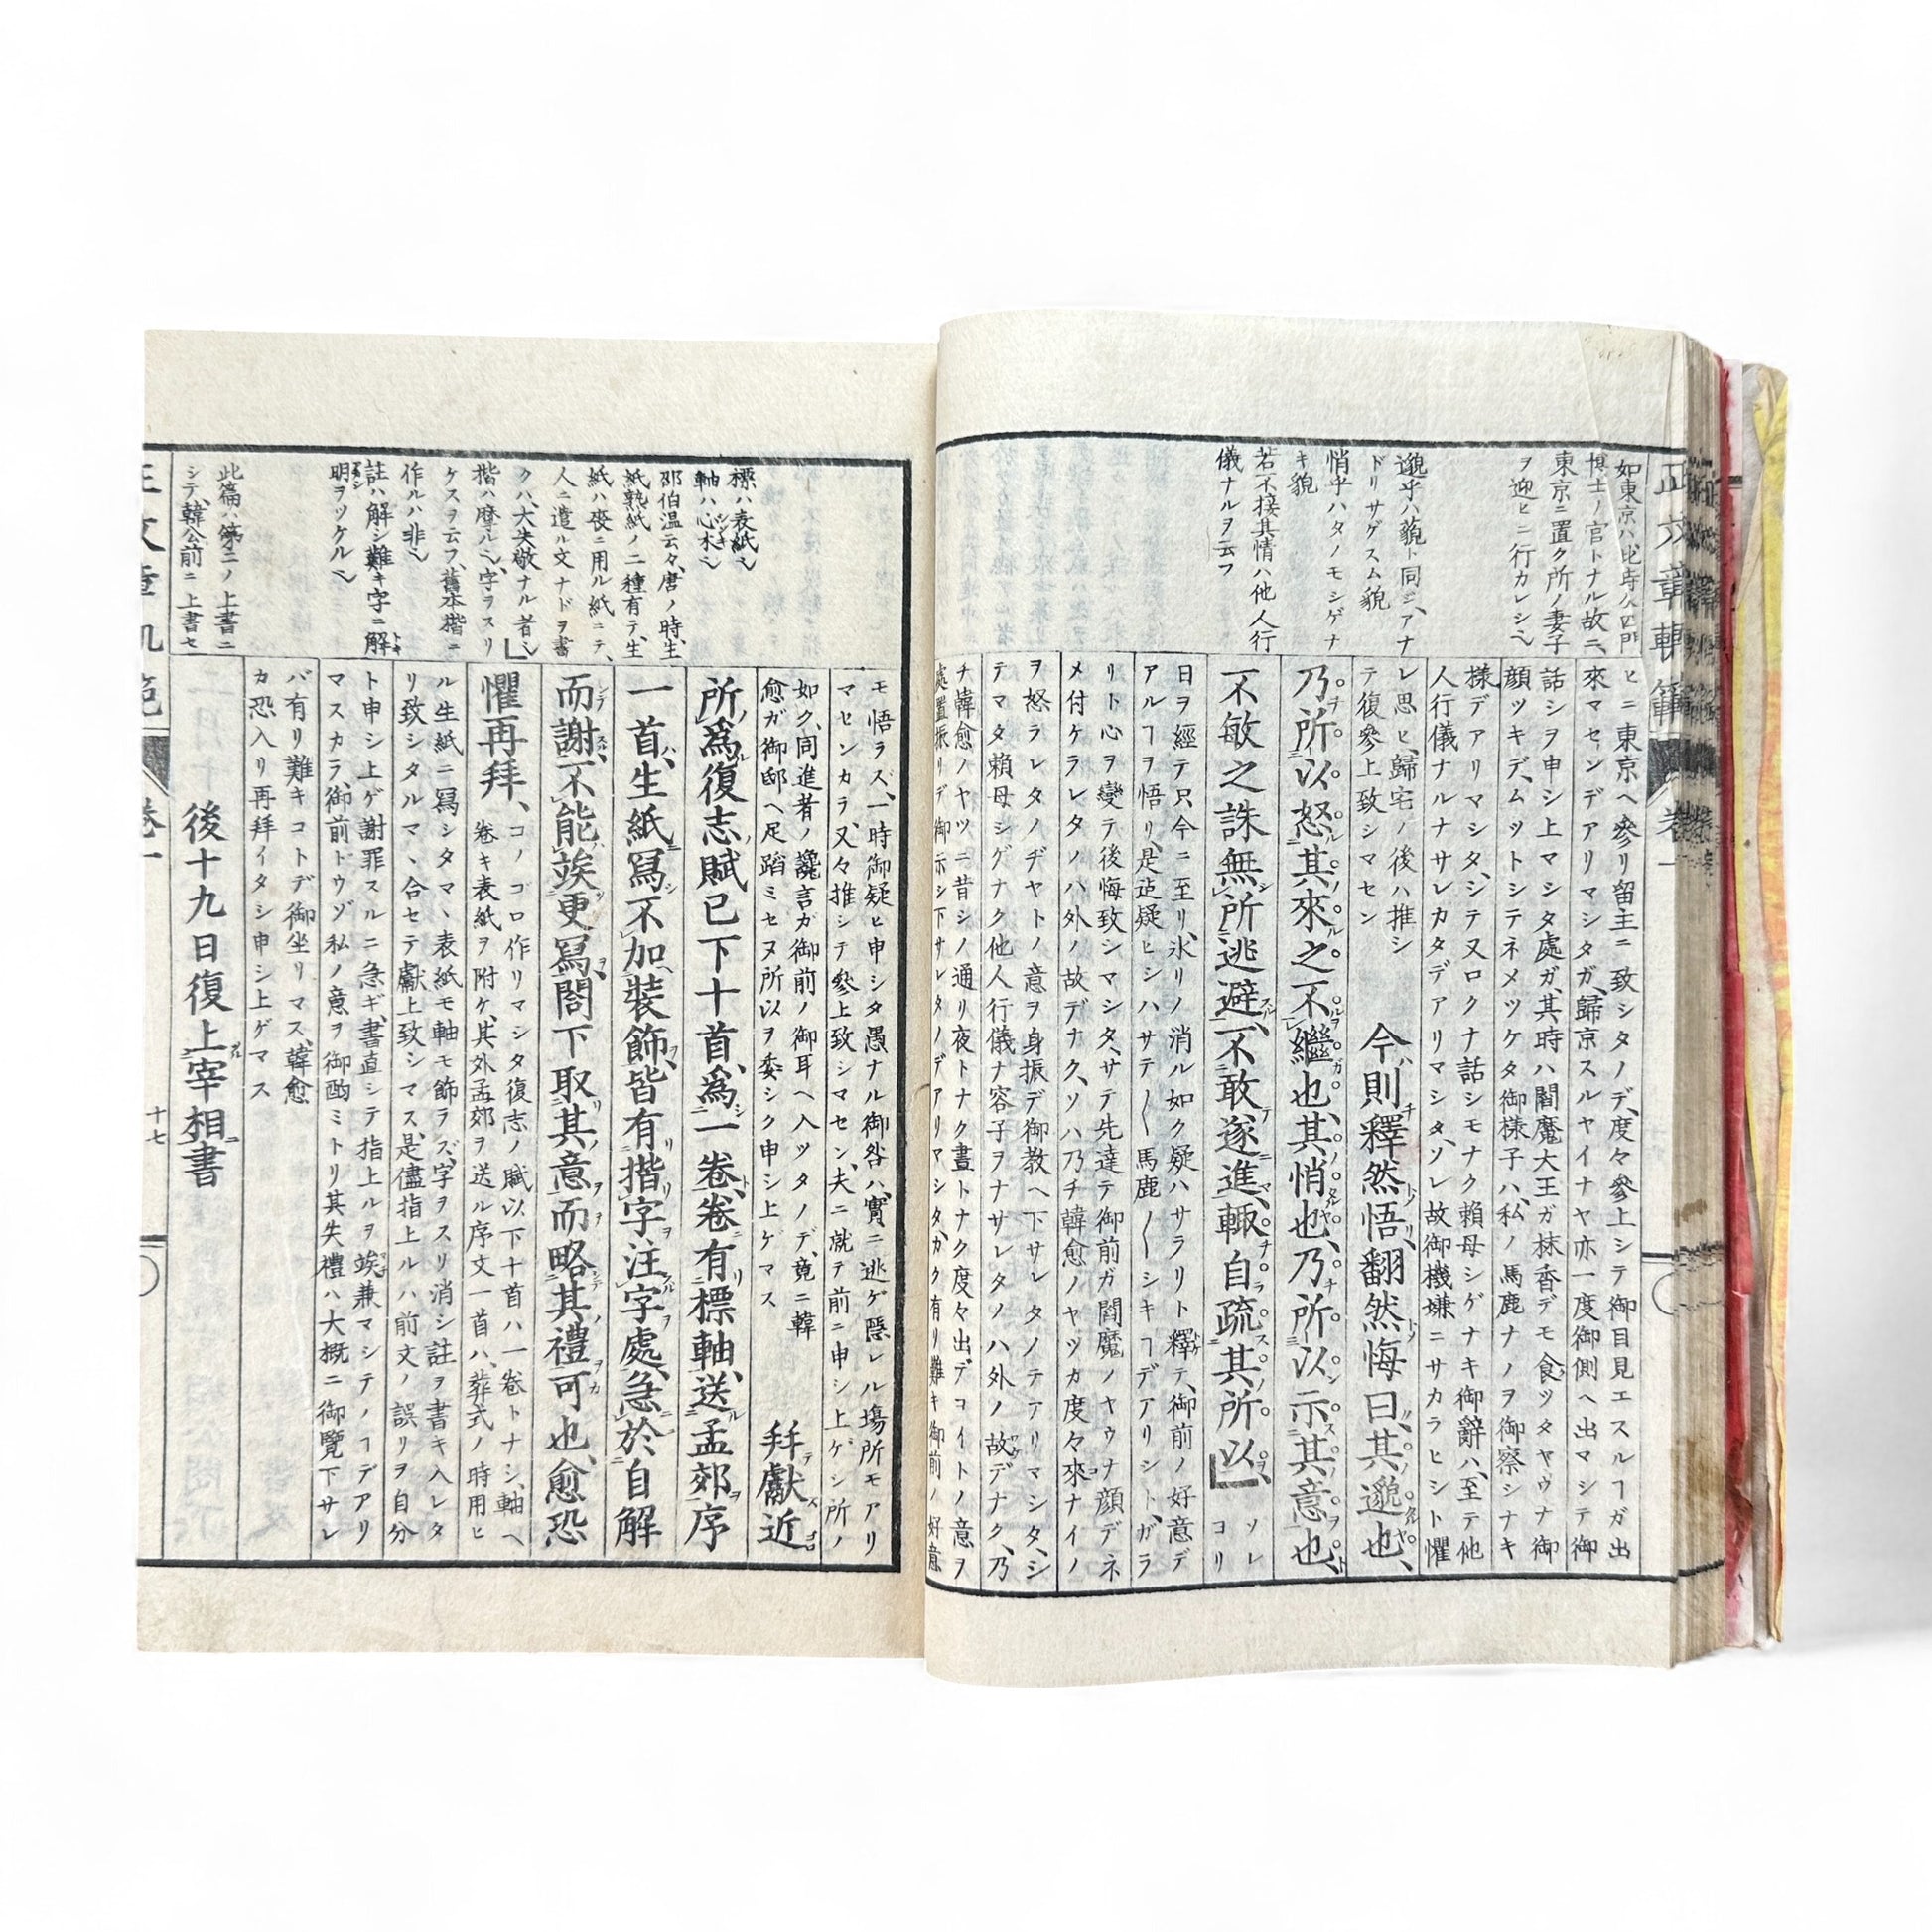 如東京ハ此時公四門
博士ノ官トナル故ニ、
東京ニ置ク所ノ妻子
ヲ迎ヒニ行カレシヘ
邈乎ハ藐ト同ジ、アナ
ドリサゲスム貌
悄乎ハタノモシゲナ
キ貌
若不接其情ハ他人行
儀ナルヲ云フ
ヒニ東京ヘ參リ留主ニ致シタノデ、度々參上シテ御目見エスルヿガ出
來マセンデアリマシタガ、歸京スルヤイナヤ亦一度御側ヘ出マシテ御
話シヲ申シ上マシタ處ガ、其時ハ閻魔大王ガ抹香デモ食ツタヤウナ御
顔ツキデ、ムツトシテネメツケタ御様子ハ、私ノ馬鹿ナノヲ御察シナキ
様デアリマシタ、シテ又ロクナ話シモナク賴母シゲナキ御辭ハ、至テ他
人行儀ナルナサレカタデアリマシタ、ソレ故御機嫌ニサカラヒシト懼
レ思ヒ、歸宅ノ後ハ推シ
テ復參上致シマセン
今則釋然悟、翻然悔曰、其邈也、
乃所以怒其來之不繼也、其悄也、乃所以示其意也、
不敏之誅無所逃避、不敢遂進、輙自疏其所以、
ソレ
コリ
日ヲ經テ只今ニ至リ、氷リノ消ル如ク疑ハサラリト釋テ、御前ノ好意デ
アルヿヲ悟リ、是迄疑ヒシハサテ〱馬鹿〱シキヿデアリシト、ガラ
リト心ヲ變テ後悔致シマシタ、サテ先達テ御前ガ閻魔ノヤウナ顔デネ
メ付ケラレタノハ外ノ故デナク、ソハ乃チ韓愈ノヤツカ度々來ナイノ
ヲ怒ラレタノヂヤトノ意ヲ身振デ御教ヘ下サレタノテアリマシタ、シ
テマタ賴母シゲナク他人行儀ナ容子ヲナサレタノハ外ノ故デナク、乃
チ韓愈ノヤツニ昔シノ通リ夜トナク晝トナク度々出デコイトノ意ヲ
處置振リデ御示シ下サレタノデアリマシタ、カク有リ難キ御前ノ好意
標ハ表紙ヘ
軸ハ心木ヘ
邵伯温云々、唐ノ時、生
紙熟紙ノ二種有テ、生
紙ハ喪ニ用ル紙ニテ、
人ニ遣ル文ナドヲ書
クハ、大失敬ナル者ヘ
揩ハ摩ルヘ、字ヲスリ
ケスヲ云フ、舊本揩ニ
作ルハ非ヘ
註ハ解シ難キ字ニ解
明ヲツケルヘ
此篇ハ第二ノ上書ニ
シテ、韓公前ニ上書セ
モ悟ラズ、一時御疑ヒ申シタ愚ナル御咎ハ、實ニ逃ゲ隱レル塲所モアリ
マセンカラ、又々推シテ參上致シマセン、夫ニ就テ前ニ申シ上ゲシ所ノ
如ク、同進者ノ讒言ガ御前ノ御耳ヘ入ツタノデ、竟ニ韓
愈ガ御邸ヘ足蹈ミセヌ所以ヲ委シク申シ上ゲマス
拜獻近
所爲復志賦已下十首、爲一卷、卷有標軸、送孟郊序
一首、生紙寫、不加裝飾、皆有揩字注字處、急於自解
而謝、不能竢更寫、閤下取其意而略其禮可也、愈恐
懼再拜、
コノゴロ作リマシタ復志ノ賦以下十首ハ一卷トナシ、軸ヘ
卷キ表紙ヲ附ケ、其外孟郊ヲ送ル序文一首ハ、葬式ノ時用ヒ
ル生紙ニ寫シタマヽ表紙モ軸モ飾ラズ、字ヲスリ消シ註ヲ書キ入レタ
リ致シタルマヽ合セテ獻上致シマス、是儘指上ルハ前文ノ誤リヲ自分
ト申シ上ゲ謝罪スルニ急ギ、書直シテ指上ルヲ竢兼マシテノヿデアリ
マスカラ、御前トウゾ私ノ意ヲ御酌ミトリ其失禮ハ大概ニ御覽下サレ
バ有リ難キコトデ御坐リマス、韓愈
カ恐入リ再拜イタシ申シ上ゲマス
後十九日復上宰相書
卷一
十七